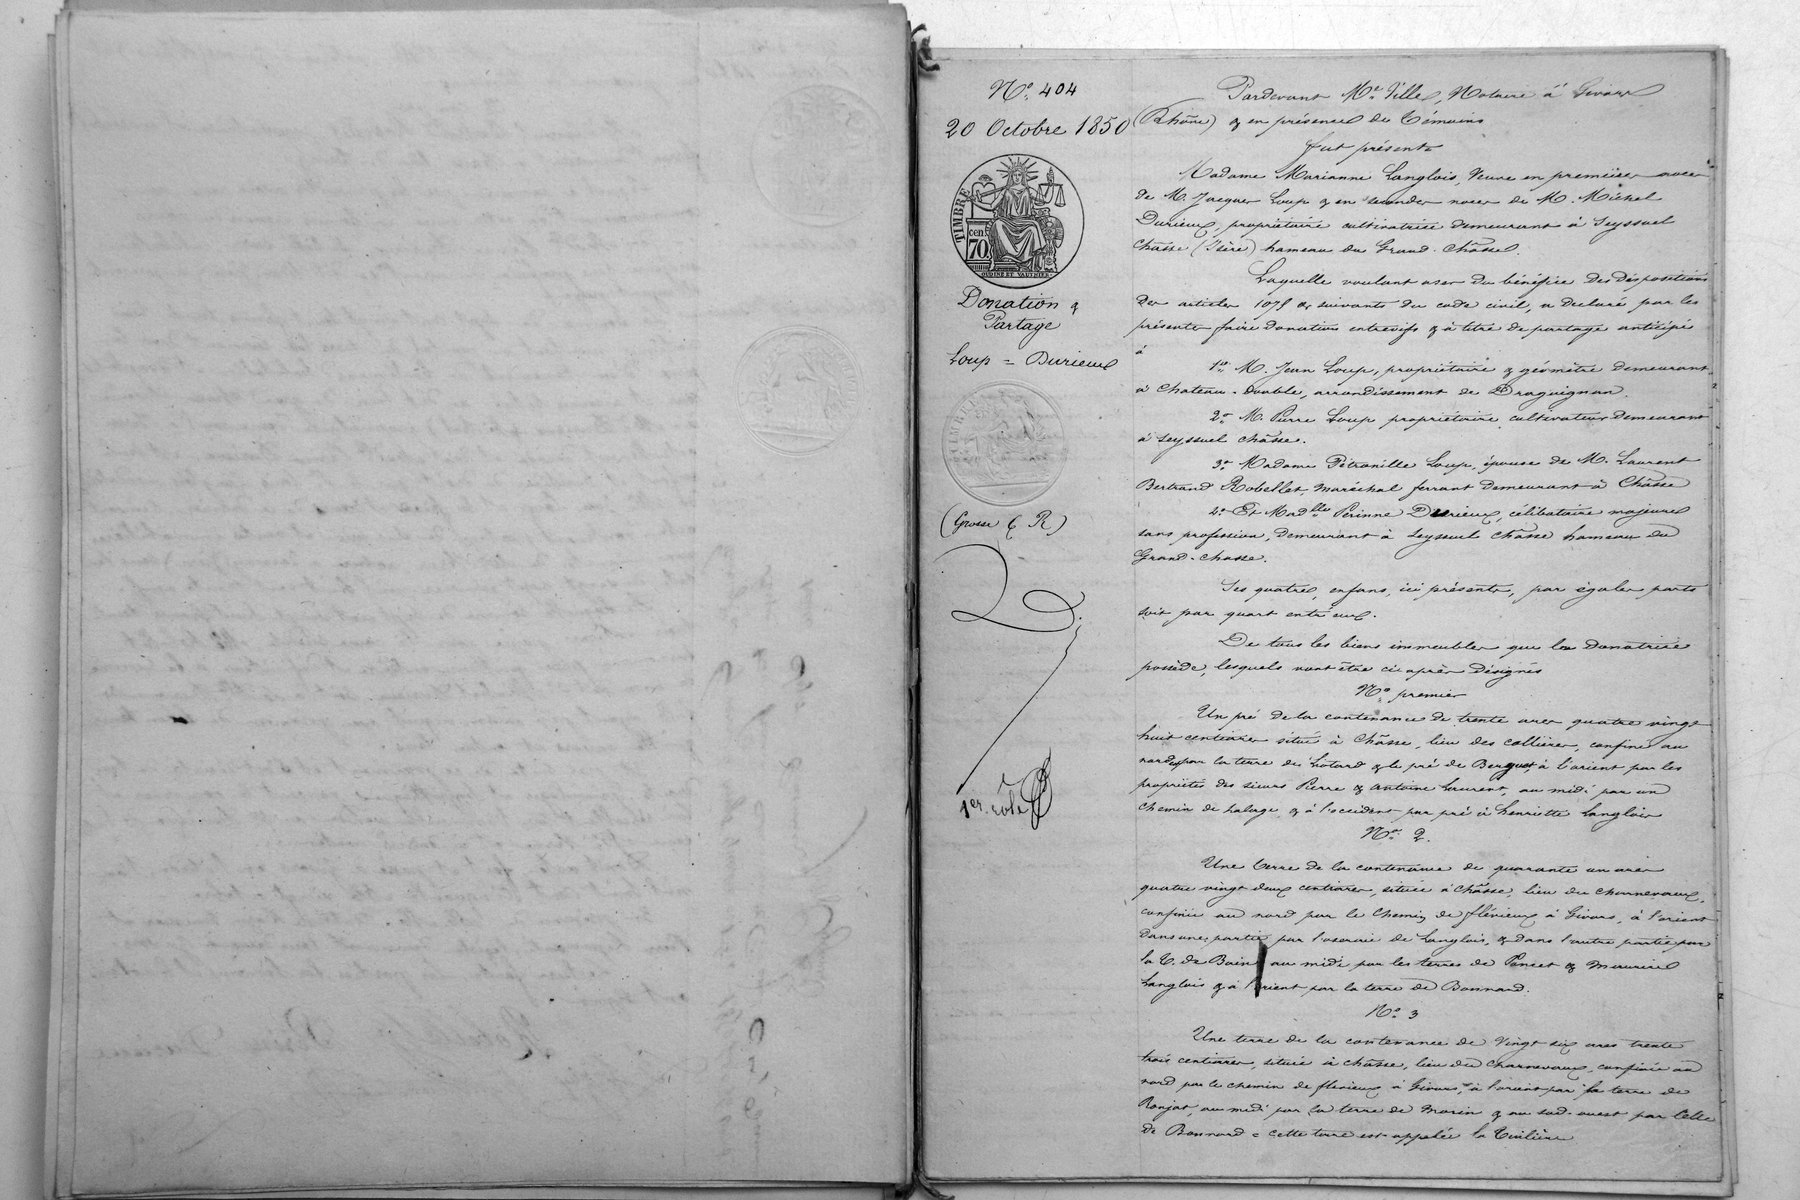 N° 404
20 Octobre 1850
TIMBRE
cen.
70
OUDINÉ ET VAUTHIER
Donation &
Partage
Loup = Durieux
(Grosse & R)
1er role
Pardevant Me Ville, Notaire à Givors
(Rhône) & en présence de témoins
fut présente
Madame Marianne Langlois, Veuve en premières noces
de M. Jacques Loup & en secondes noces de M. Michel
Durieux, propriétaire cultivatrice demeurant à Seyssuel
Chasse (Isère) hameau du Grand-Châsse.
Laquelle voulant user du bénéfice des dispositions
des articles 1075 & suivants du code civil, a déclaré par les
présentes faire donation entrevifs & à titre de partage anticipé
à
1° M. Jean Loup, propriétaire & géomètre demeurant
à Chateau-Double, arrondissement de Draguignan.
2° M. Pierre Loup propriétaire cultivateur demeurant
à Seyssuel Châsse.
3° Madame Pétronille Loup, épouse de M. Laurent
Bertrand Robellet, maréchal ferrant demeurant à Châsse
4° Et Madlle Perinne Durieux, célibataire majeure
sans profession, demeurant à Seyssuel Châsse hameau du
Grand-Chasse.
Ses quatre enfans, ici présents, par égales parts
soit par quart entre eux.
De tous les biens immeubles que la donatrice
possède, lesquels vont être ci après désignés
N° premier
Un pré de la contenance de trente ares quatre vingt
huit centiares situé à Châsse, lieu des collières, confiné au
nord par la terre de Liotard & le pré de Berguet, à l'orient par les
propriétés des sieurs Pierre & Antoine Laurent, au midi par un
chemin de halage & à l'occident par pré à henriette Langlois
N° 2.
Une terre de la contenance de quarante un ares
quatre vingt deux centiares, située à Châsse, lieu de charnevaux,
confinée au nord par le chemin de flévieux à Givors, à l'orient
dans une partie par l'oseraie de Langlois, & dans l'autre partie par
la T. de Boin au midi par les terres de Poncet & Maurice
Langlois & à l'orient par la terre de Bonnard.
N° 3
Une terre de la contenance de Vingt six ares trente
trois centiares, située à châsse, lieu de charnevaux, confinée au
nord par le chemin de flevieux à Givors, à l'orient par la terre de
Ronjat, au midi par la terre de Morin & au sud-ouest par celle
de Bonnard = cette terre est appelée la Tuilière